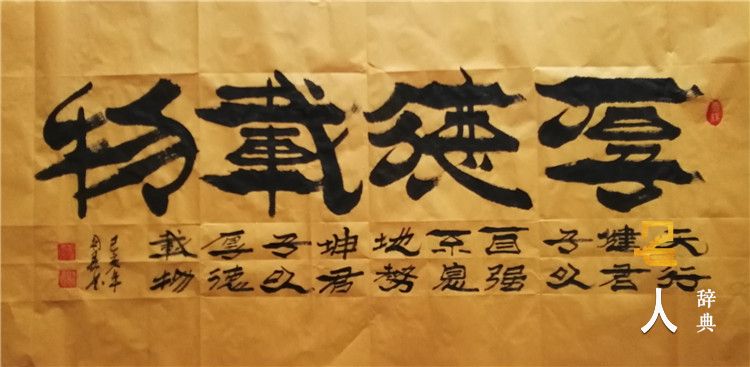 厚德載物
天行
健君
子以
自强
不息
地势
坤君
子以
厚德
載物
己亥年
人
辞典